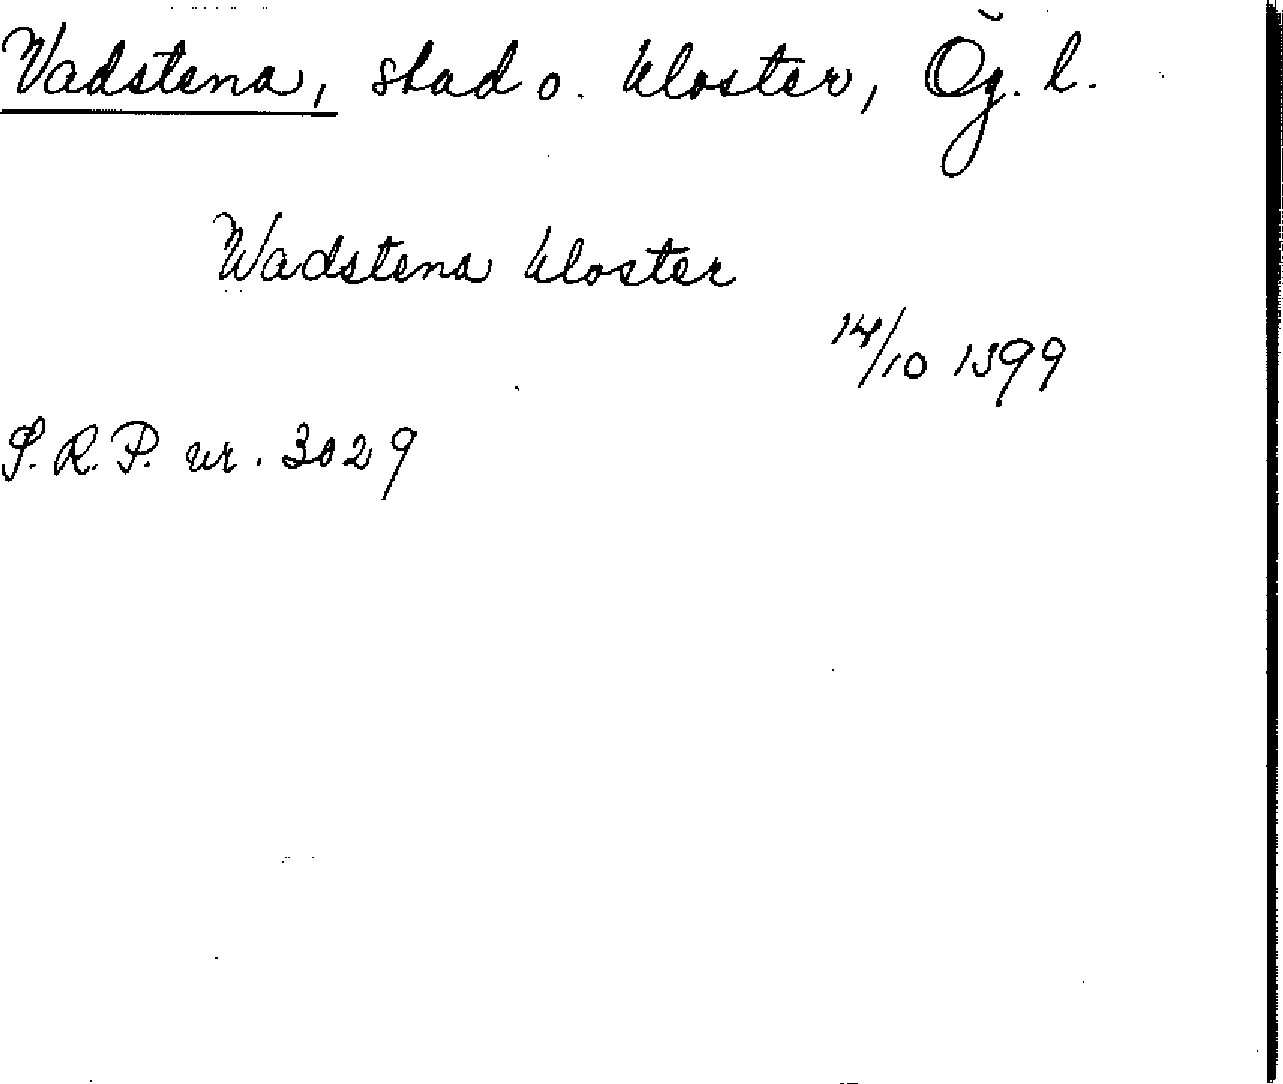 Vadstena, stad o. kloster, Ög. l.
Wadstena kloster
14/10 1399
S.R.P. nr. 3029